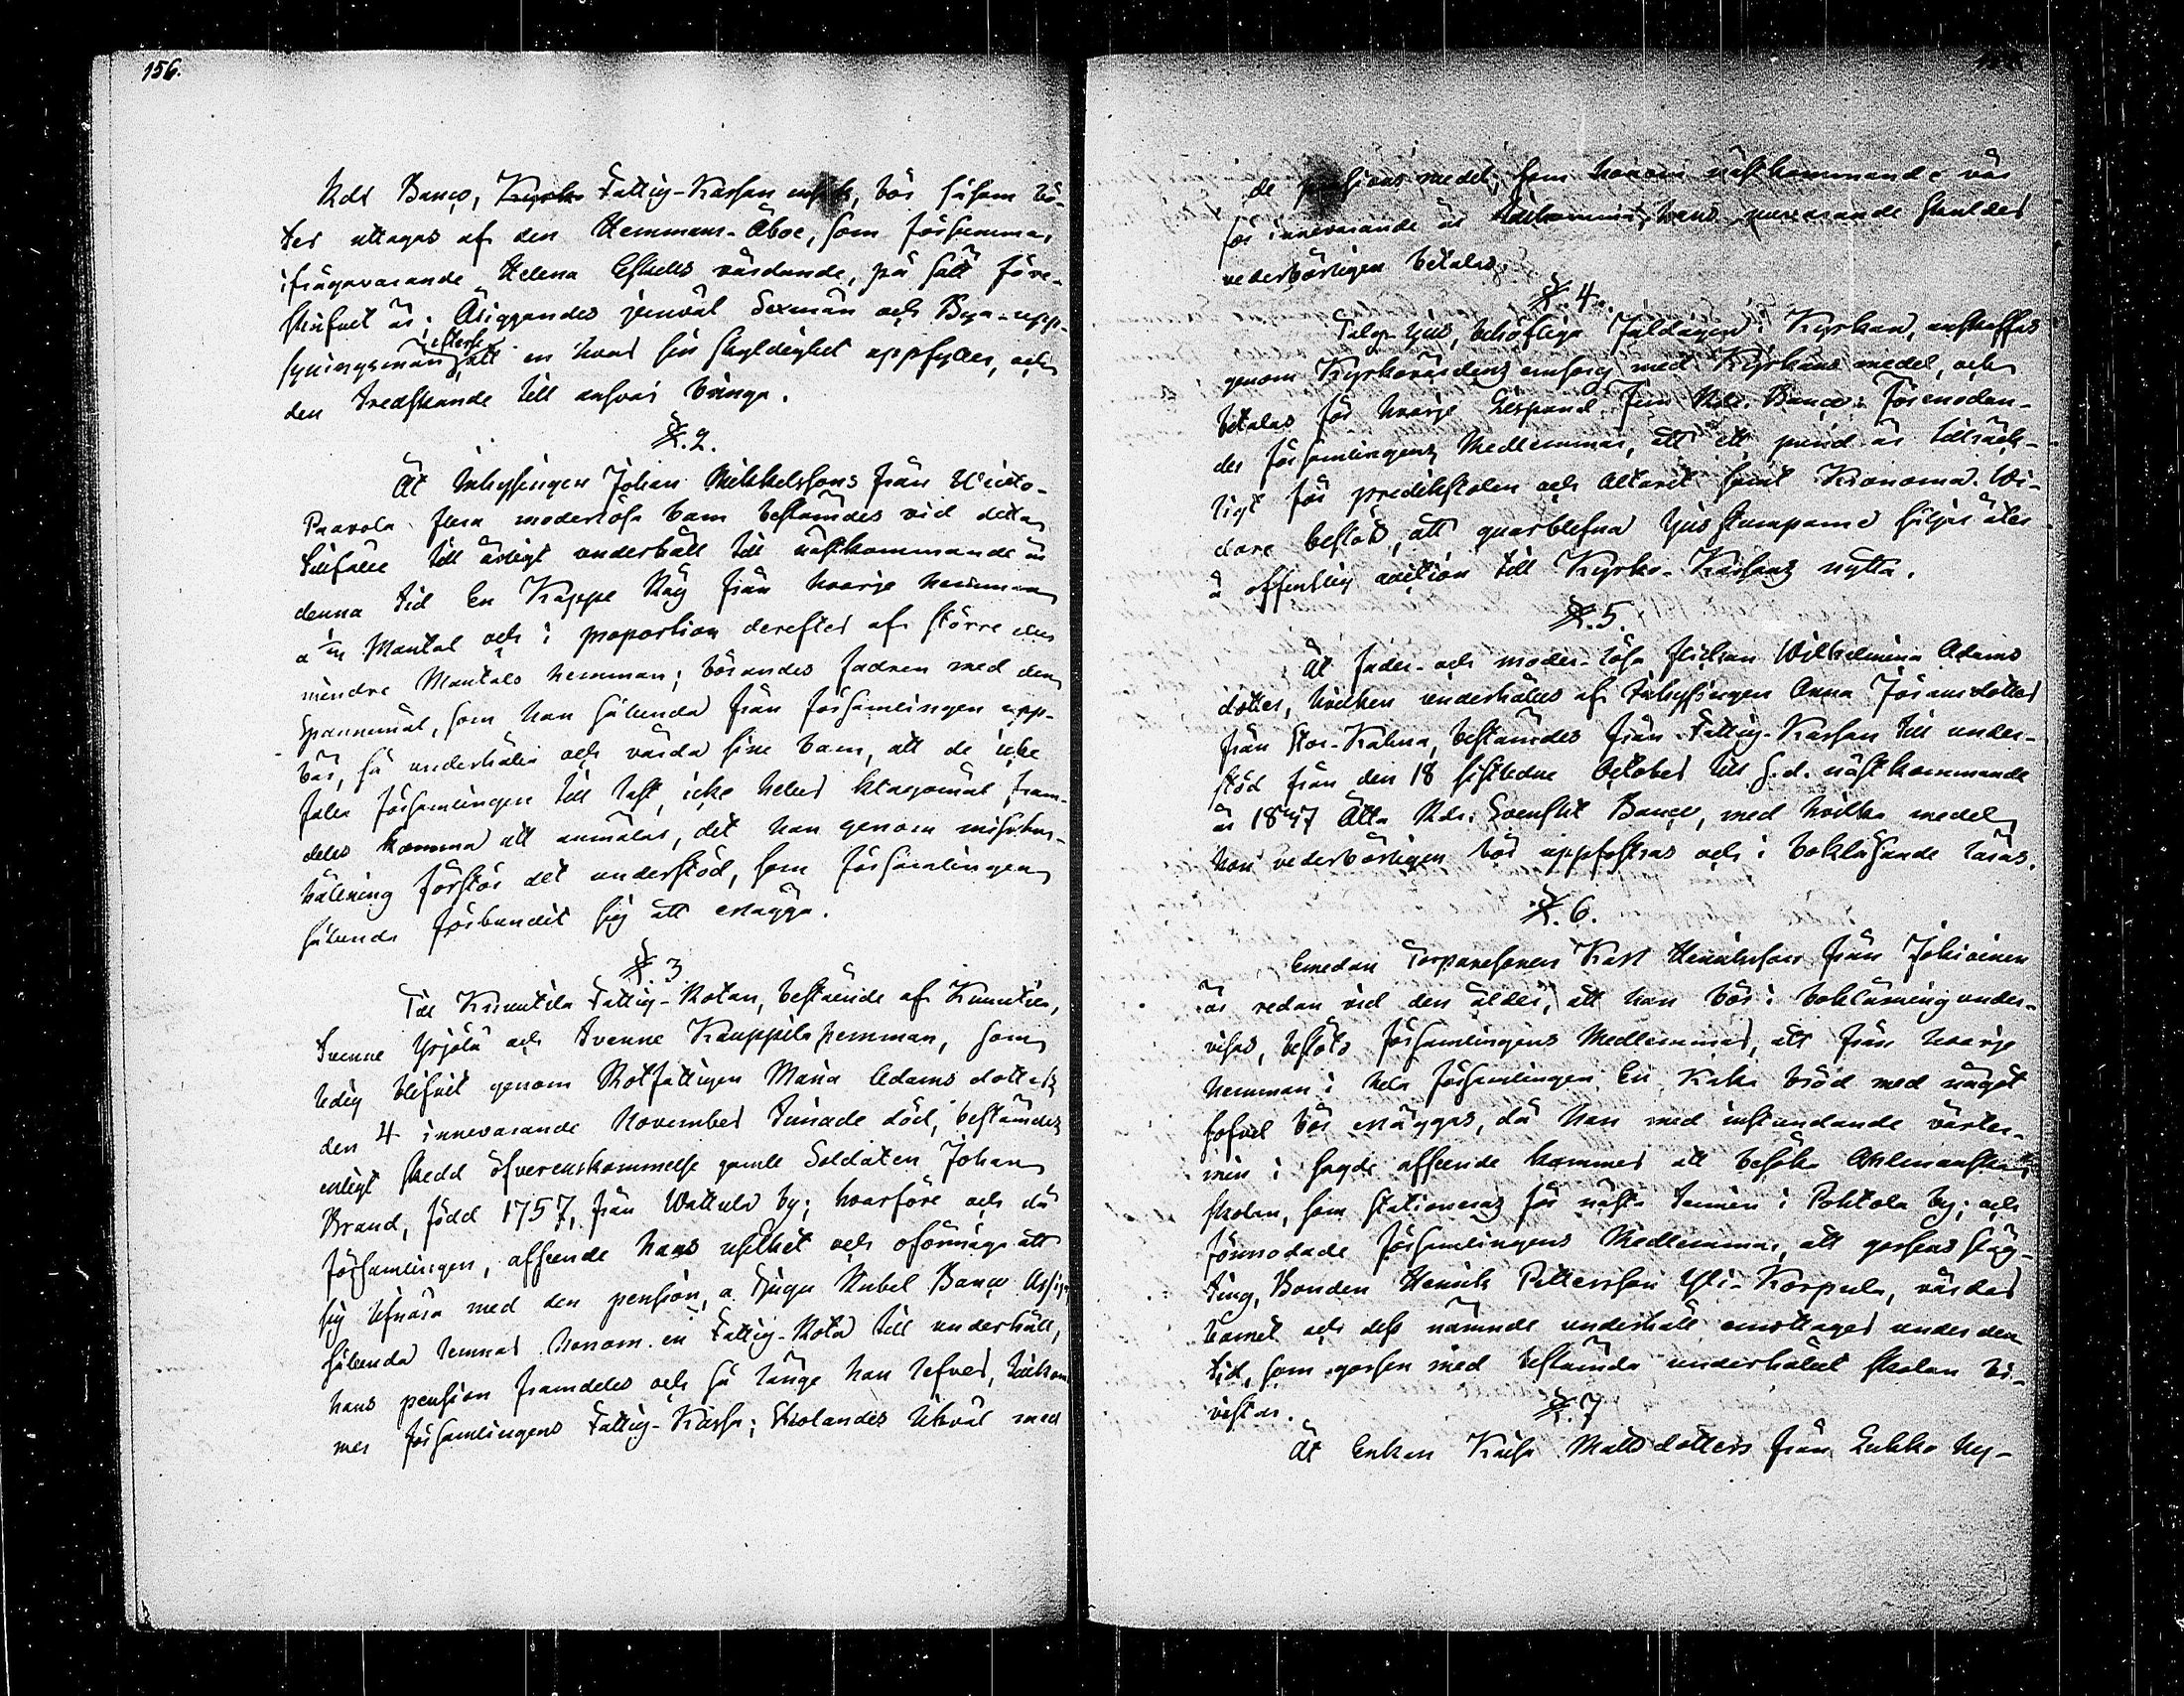 156.
Rdr Banco, Kyrko Fattig-Kassan enskilt, bör såsom bö-
ter uttagas af den Hemmans-Åboe, som försummar
ifrågavarande Helena Eskels vårdande, på sätt före-
skrifvet är; Åliggandes jemväl Sexmän och Bya-upp-
syningsmän, efterse
att en hvar sin skyldighet uppfyller, och
den tredskande till ansvar bringa.
§. 2.
Åt Inhysingen Johan Mikkelssons från
Paavola flera moderlösa barn bestämdes vid detta
tillfälle till årligt underhåll till nästkommande år
denna tid En Kappe Råg från hvarje hemman
a Mantal och i proportion derefter af större eller
mindre Mantals hemman; börandes fadren med den
Spannmål, som han sålunda från församlingen upp-
bär, så underhålla och vårda sine barn, att de icke
falla församlingen till last, icke heller klagomål fram-
deles komma att anmälas, det han genom misshus-
hållning förstör det understöd, som församlingen
sålunda förbundit sig att erlägga.
§ 3
Till Kunnitila Fattig-Rotan, bestående af Kunnitila,
tvenne Yrjölä och tvenne Kauppila hemman, som
ledig blifvit genom Rotfattigen Maria Adams dotters
den 4 innevarande November timade död, bestämdes
enligt skedd öfverenskommelse gamle Soldaten Johan
Brand, född 1757, från Wattula by; hvarföre och då
församlingen, afseende hans uselhet och oförmåga att
sig lifnära med den pension, a Tjugu Rubel Banco Assig:,
sålunda lemnar honom en Fattig-Rota till underhåll,
hans pension framdeles och så länge han lefver, tillkom-
mer församlingens Fattig-Kassa; Skolandes likväl med
de pensions medel, som honom nästkommande vår
för innevarande år tillkommer, hans nuvarande skulder
vederbörligen betalas.
§. 4.
Talg-ljus, behöfliga Juldagen i Kyrkan, anskaffas
genom Kyrkovärdens omsorg med Kyrkans medel, och
betalas för hvarje Lispund Fem Rdr. Banco: Förmodan-
des församlingens Medlemmar, att ett pund är tillräck-
ligt för predikstolen och Altaret samt Kronorna. Wi-
dare beslöts, att quarblefna ljusstumparne säljes åter
å offentlig auction till Kyrko-Kassans nytta.
§. 5.
Åt fader- och moder-lösa flickan Wilhelmina Adams
dotter, hvilken underhålles af Inhysingen Anna Göransdotter
från Stor-Kalma, bestämdes från Fattig-Kassan till under-
stöd från den 18 sistledne October till s.d. nästkommande
år 1847 Åtta Rdr: Svenskt Banco, med hvilka medel
hon vederbörligen bör uppfostras och i bokläsande läras.
§. 6.
Emedan Torparesonen Karl Henriksson från Johioinen
är redan vid den ålder, att han bör i bokläsning under-
visas, beslöts församlingens Medlemmar, att från hvarje
hemman i hela församlingen En Kaka bröd med något
sofvel bör erläggas, då han med instundande vårter-
min i sagde afseende kommer att besöka Ahlmanska
skolan, som stationeras för nästa termin i Pohtola by; och
förmodade församlingens Medlemmar, att gossens släg-
ting, Bonden Henrik Pettersson Yli-Korpula, vårdar
barnet och dess nämnde underhåll emottager under den
tid, som gossen med bestämda underhållet skolan bi-
vistar.
§. 7
Åt Enkan Kaisa Mattsdotters från Lukko Ny-